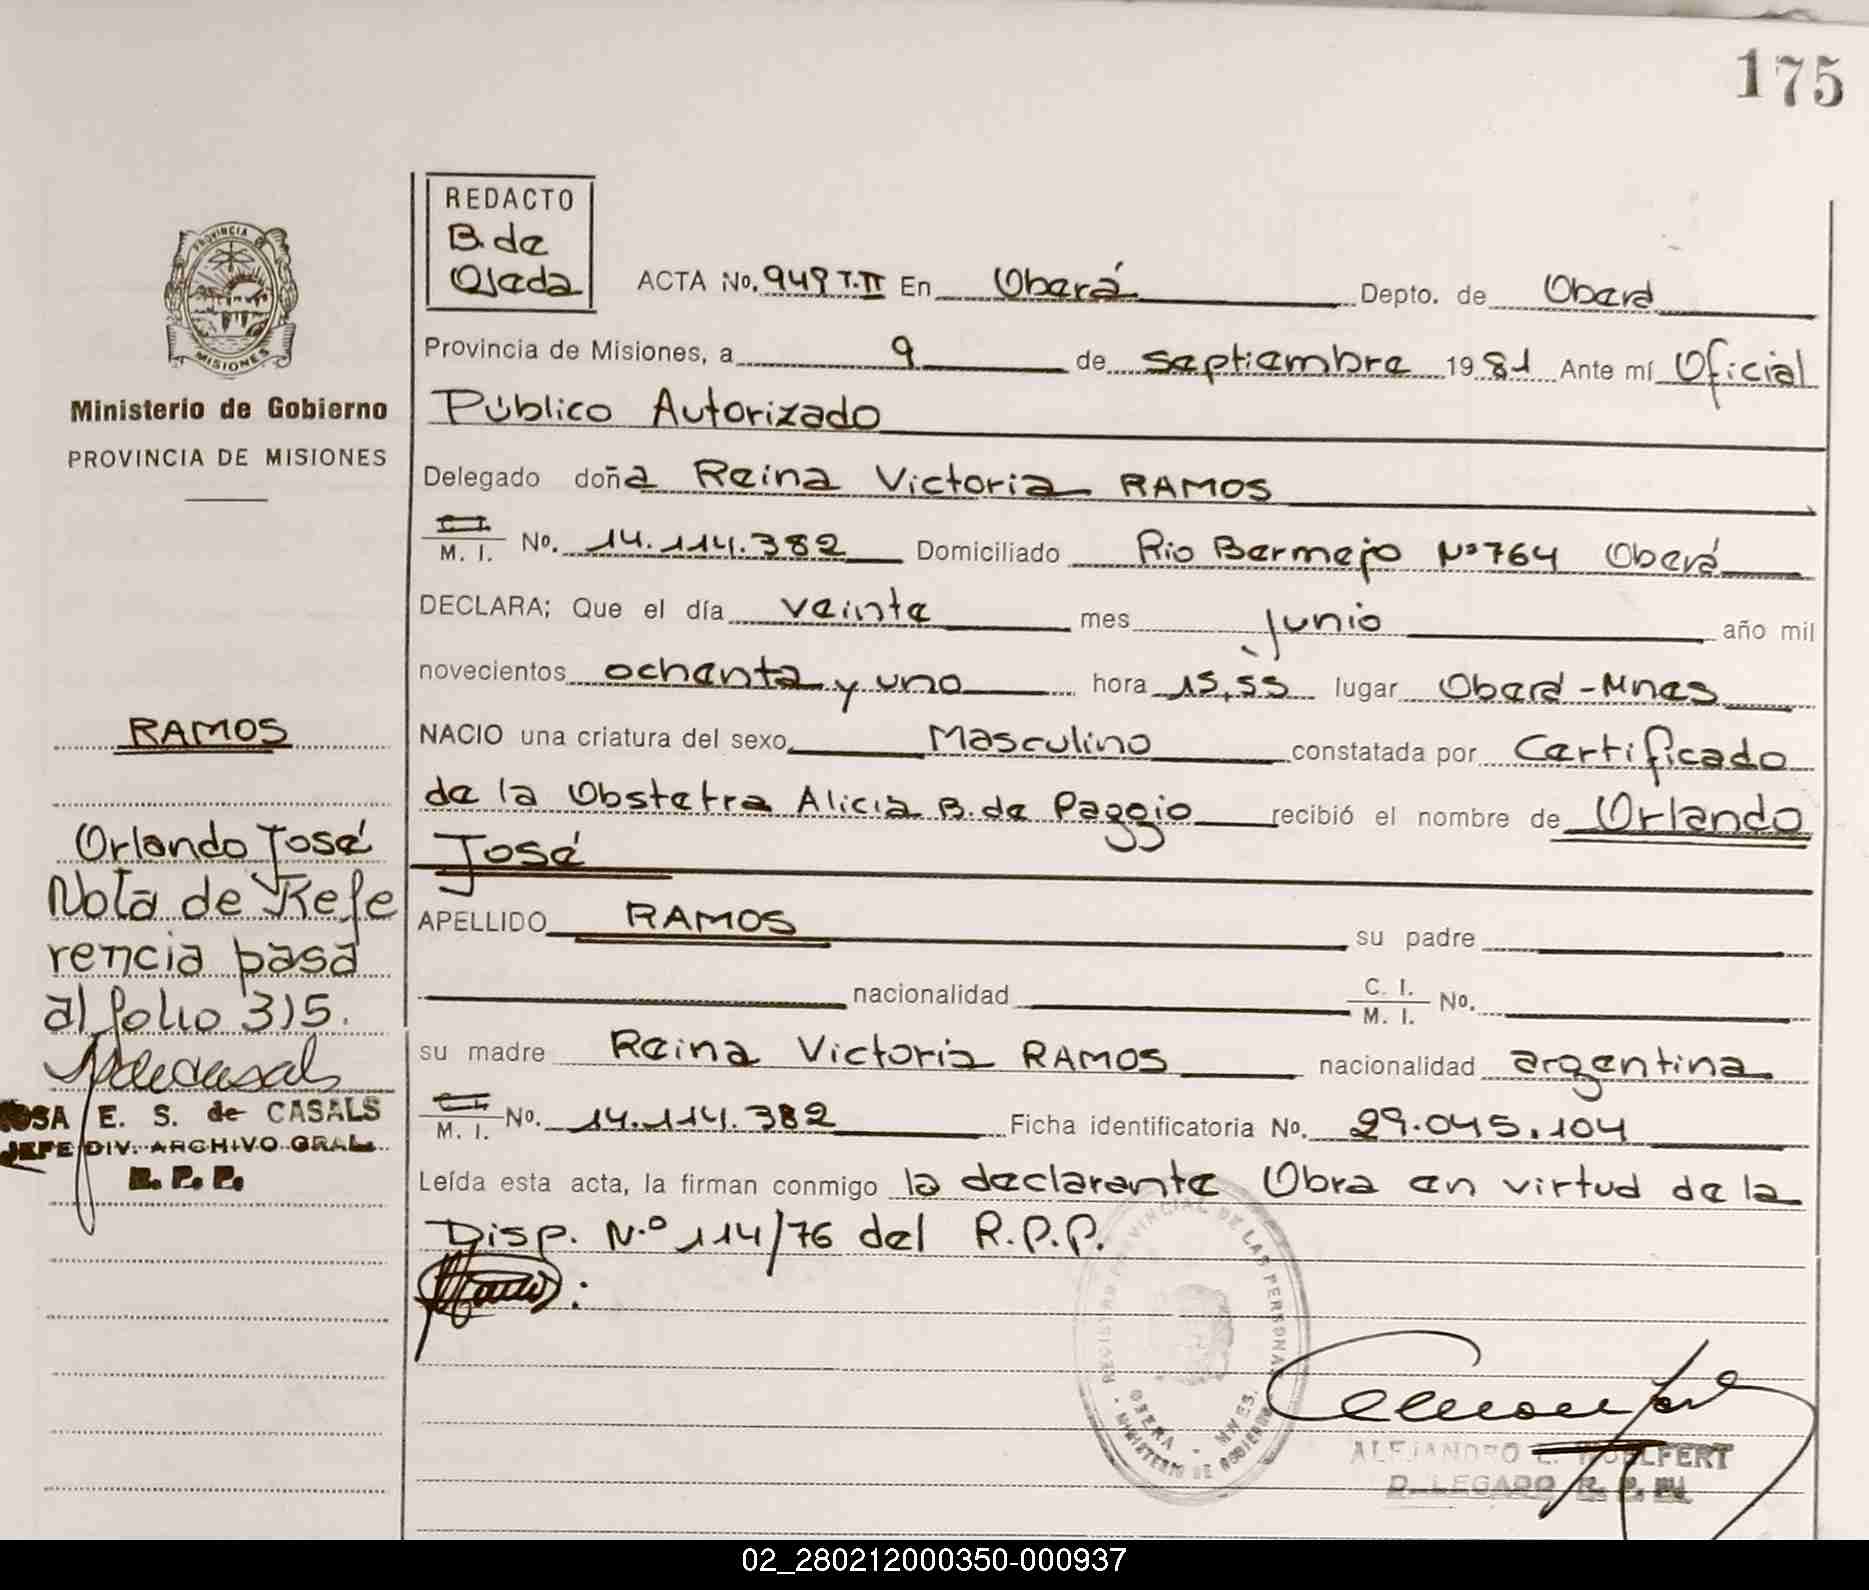 175
REDACTO
B. de
Ojeda
PROVINCIA DE
MISIONES
Ministerio de Gobierno
PROVINCIA DE MISIONES
ACTA No. 949 T.II En Oberá Depto. de Oberá
Provincia de Misiones, a 9 de septiembre 1981 Ante mí Oficial
Público Autorizado
Delegado doña Reina Victoria RAMOS
C. I.
M. I. No. 14.114.382 Domiciliado Rio Bermejo Nº 764 Oberá
DECLARA; Que el día veinte mes junio año mil
novecientos ochenta y uno hora 15,55 lugar Oberá - Mnes
NACIO una criatura del sexo Masculino constatada por Certificado
de la Obstetra Alicia B. de Paggio recibió el nombre de Orlando
José
APELLIDO RAMOS su padre
nacionalidad C. I.
M. I. No.
su madre Reina Victoria RAMOS nacionalidad argentina
C. I.
M. I. No. 14.114.382 Ficha identificatoria No. 29.045.104
Leída esta acta, la firman conmigo la declarante Obra en virtud de la
Disp. N.º 114/76 del R.P.P.
RAMOS
Orlando José
Nota de Refe
rencia pasa
al folio 315.
E. S. de CASALS
JEFE DIV. ARCHIVO GRAL.
R. P. P.
REGISTRO PROVINCIAL DE LAS PERSONAS
OBERA - MNES.
MINISTERIO DE GOBIERNO
ALEJANDRO
DELEGADO R. P. P.
02_280212000350-000937